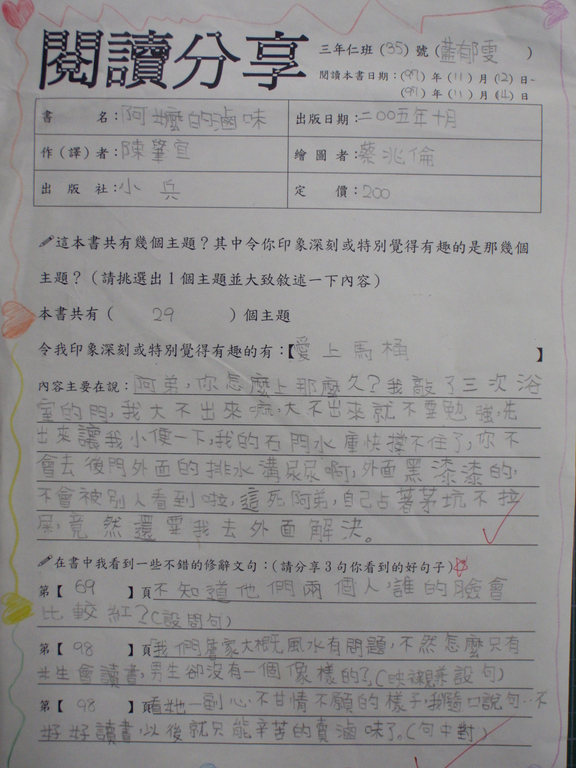 閱讀分享
三年仁班(35)號(藍郁雯)
閱讀本書日期:(97)年(11)月(12)日~
(97)年(11)月(14)日
書名:阿嬤的滷味 出版日期:二00五年十月
作(譯)者:陳肇宜 繪圖者:蔡兆倫
出版社:小兵 定價:200
這本書共有幾個主題?其中令你印象深刻或特別覺得有趣的是那幾個
主題?(請挑選出1個主題並大致敘述一下內容)
本書共有(29)個主題
令我印象深刻或特別覺得有趣的有:【愛上馬桶】
內容主要在說:阿弟,你怎麼上那麼久?我敲了三次浴
室的門,我大不出來嘛,大不出來就不要勉強,先
出來讓我小便一下,我的石門水庫快撐不住了,你不
會去後門外面的排水溝尿尿啊,外面黑漆漆的,
不會被別人看到啦,這死阿弟,自己占著茅坑不拉
屎,竟然還要我去外面解決。
在書中我看到一些不錯的修辭文句:(請分享3句你看到的好句子)
第【69】頁不知道他們兩個人,誰的臉會
比較紅?(設問句)
第【98】頁我們詹家大概風水有問題,不然怎麼只有
女生會讀書,男生卻沒有一個像樣的?(映襯兼設句)
第【98】頁看她一副心不甘情不願的樣子,我隨口說句:不
好好讀書,以後就只能辛苦的賣滷味了。(句中對)